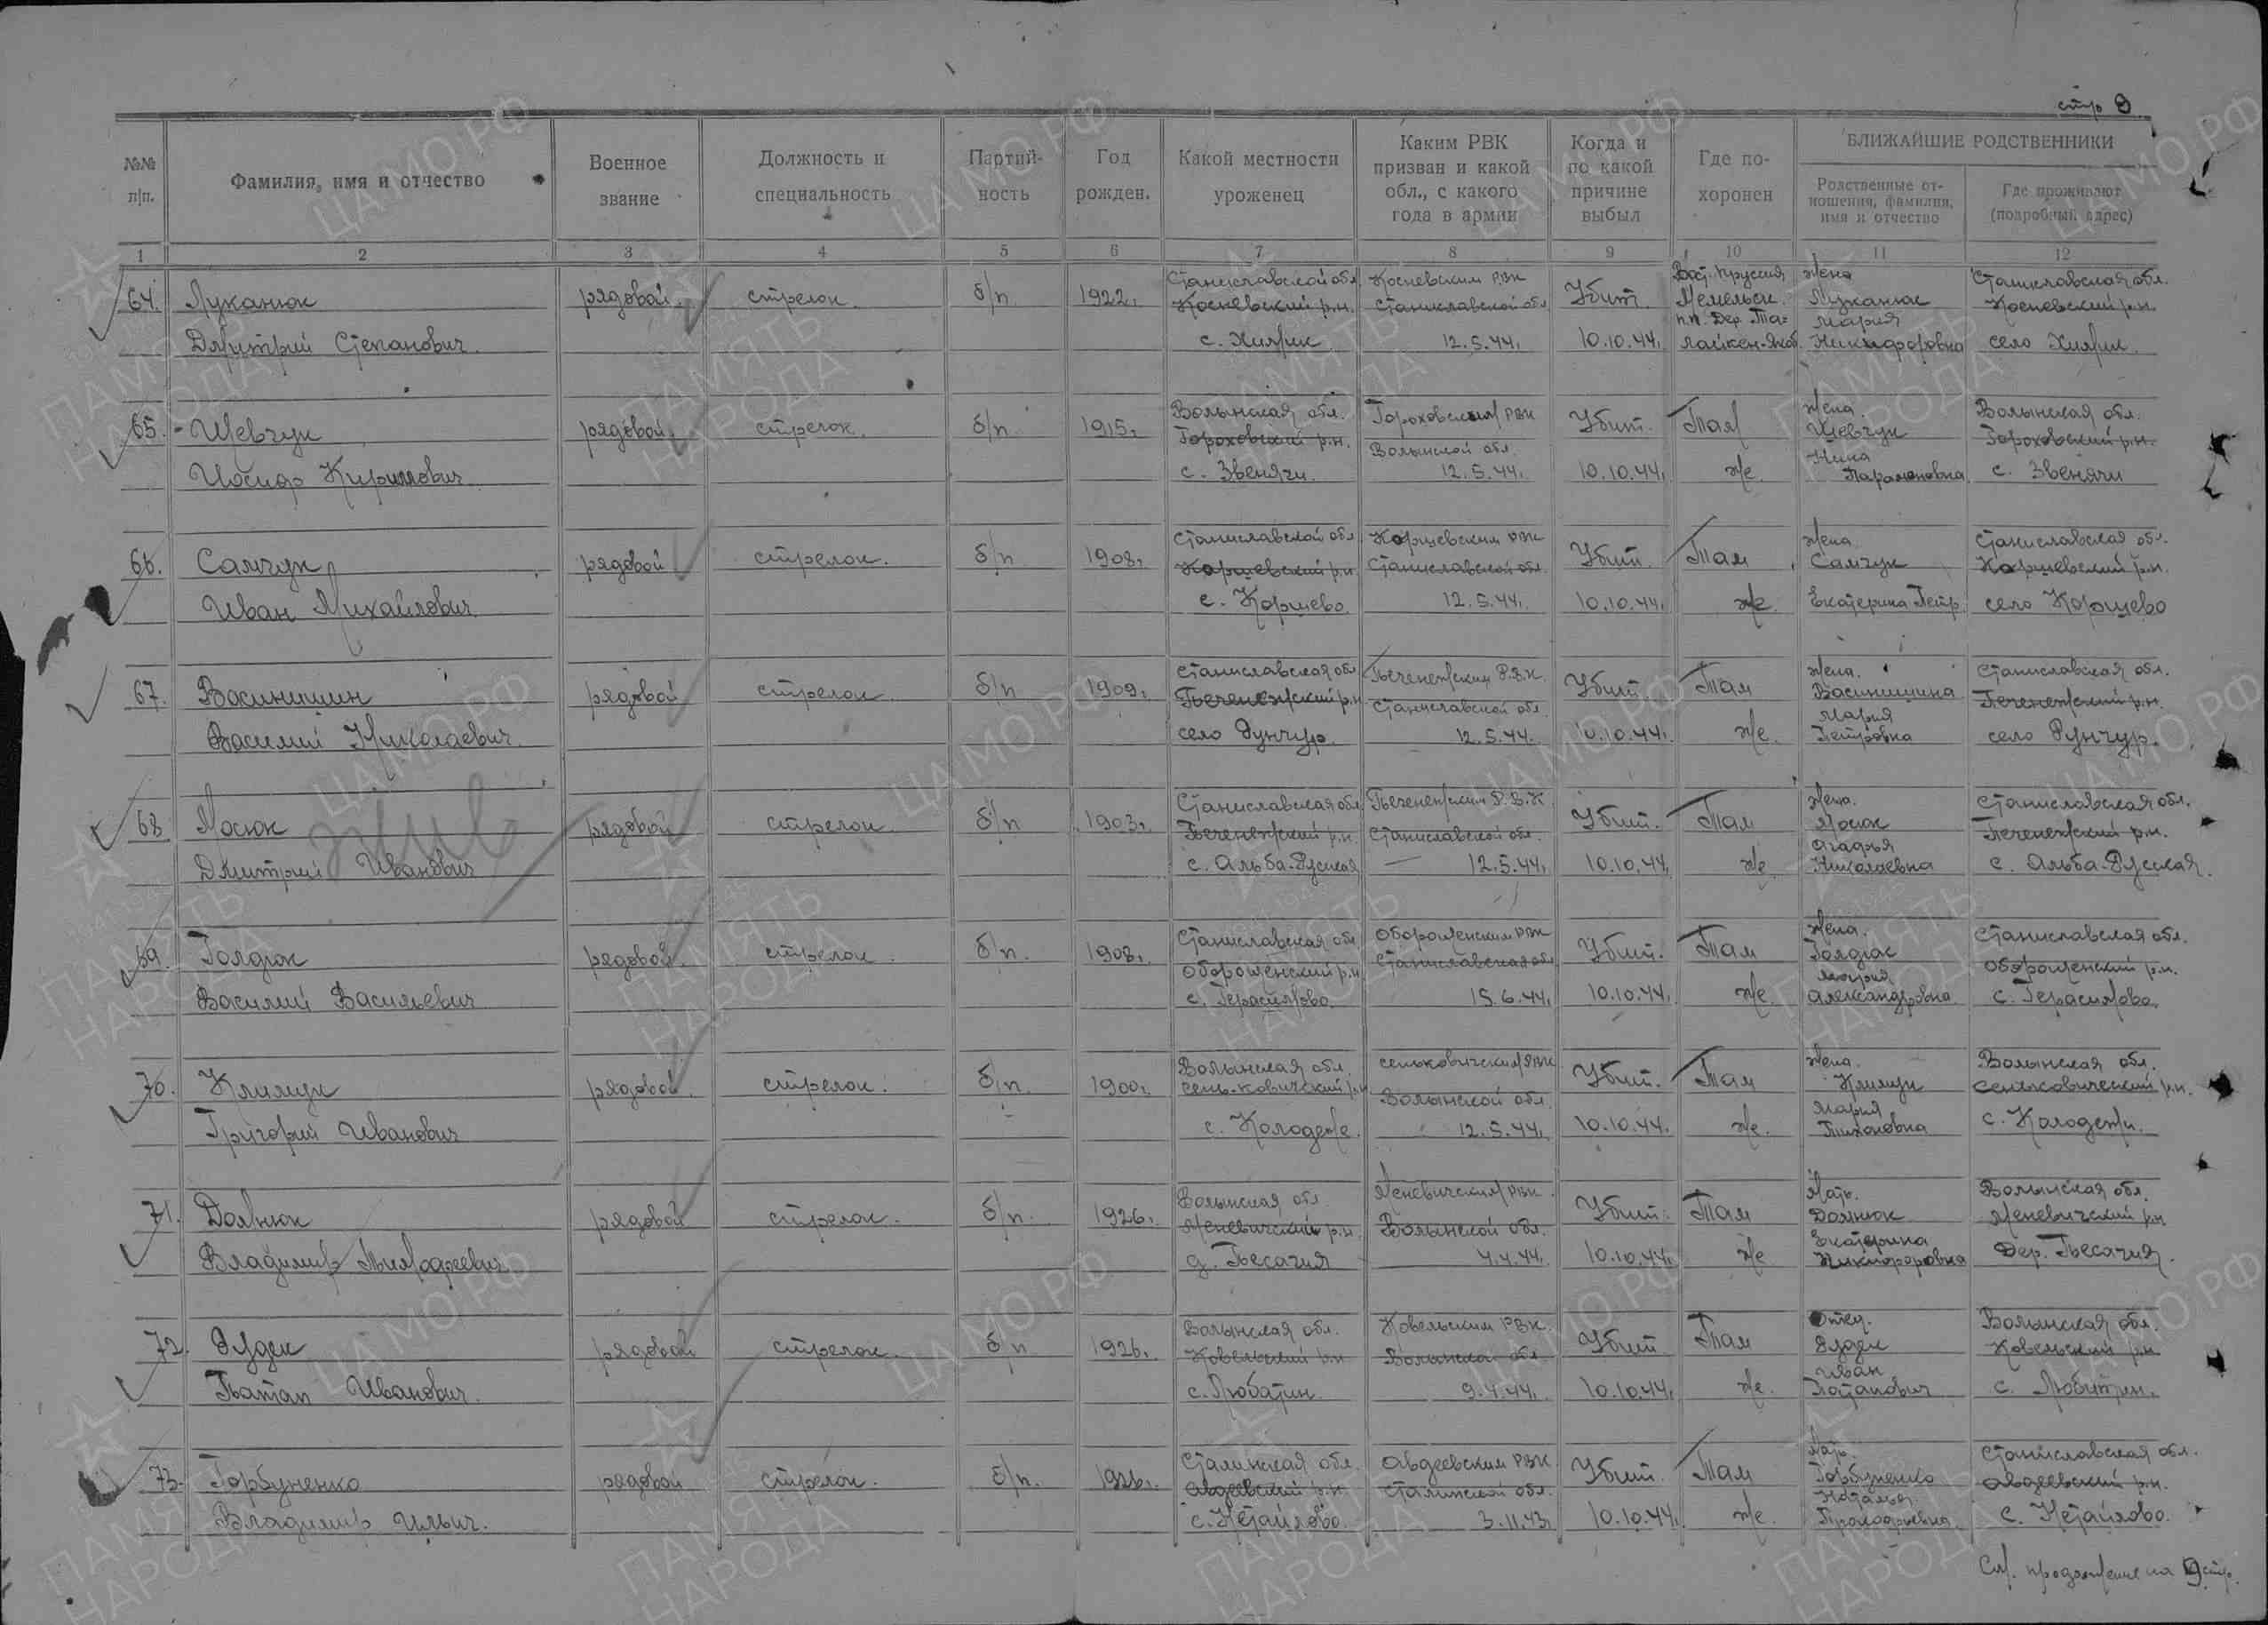 стр 8
№№ п/п.
Фамилия, имя и отчество
Военное звание
Должность и специальность
Партий-ность
Год рожден.
Какой местности уроженец
Каким РВК призван и какой обл., с какого года в армии
Когда и по какой причине выбыл
Где по-хоронен
БЛИЖАЙШИЕ РОДСТВЕННИКИ
Родственные от-ношения, фамилия, имя и отчество
Где проживают (подробный адрес)
1 2 3 4 5 6 7 8 9 10 11 12
Станиславской обл. Косневским РВК Вост. Пруссия жена Станиславская обл.
64. Луканюк рядовой стрелок б/п 1922 Косневский р.н. Станиславской обл Убит Мемельск. Луканюк Косневский р.н.
п.п. Дер. Та= Мария
Дмитрий Степанович с. 12.5.44. 10.10.44. Никифоровна село
Волынская обл. Гороховским РВК жена Волынская обл.
65. Шевчук рядовой стрелок. б/п 1915. Гороховский р.н. Волынской обл. Убит. Там Шевчук Гороховский р.н.
Иосиф Кириллович с. Звенячи. 12.5.44. 10.10.44. же. Парамоновна с. Звенячи
Станиславской обл Коршевским РВК жена Станиславская обл.
66. Самчук рядовой стрелок. б/п 1908. Коршевский р.н. Станиславской обл. Убит. Там Самчук Коршевский р.н.
Иван Михайлович с. Коршево 12.5.44. 10.10.44. же. Екатерина Петр. село Коршево
Станиславская обл Печенежским Р.В.К. жена. Станиславская обл.
67. Васинишин рядовой стрелок. б/п 1909. Печенежский р.н Станиславской обл. Убит. Там Васинишина Печенежский р.н.
Мария
Василий Николаевич. село Рунчур. 12.5.44. 10.10.44. же. Петровна село Рунчур.
Станиславская обл. Печенежским Р.В.К жена. Станиславская обл.
68 Мосюк жив рядовой стрелок. б/п 1903. Печенежский р.н. Станиславской обл. Убит. Там Мосюк Печенежский р.н.
Агафья
Дмитрий Иванович с. Альба-Русская 12.5.44. 10.10.44. же. Николаевна с. Альба-Русская.
Станиславская обл Оборошенским РВК жена. Станиславская обл.
69. Голдюк рядовой. стрелок. б/п. 1908. Оборошенский р.н Станиславская обл Убит. Там Голдюк Оборошенский р.н.
Мария
Василий Васильевич с. Герасимово. 15.6.44. 10.10.44. же. Александровна с. Герасимово.
Волынская обл. Сеньковичским РВК жена. Волынская обл.
70. Климук рядовой. стрелок. б/п. 1900. Сень-ковичский р.н Волынской обл. Убит. Там Климук р.н.
Мария
Григорий Иванович с. Колодеже. 12.5.44. 10.10.44. же. Тихоновна с. Колодежи.
Волынская обл. Меневичским РВК. Мать. Волынская обл.
71. Долнюк рядовой стрелок. б/п. 1926. Меневичский р.н. Волынской обл. Убит. Там Долнюк Меневичский р.н
Екатерина
Владимир Тимофеевич д. Песачия 4.4.44. 10.10.44. же Никифоровна Дер. Песачия.
Волынская обл. Ковельским РВК. Отец. Волынская обл.
72. Рудек рядовой стрелок. б/п 1926. Ковельский р.н Волынской обл. Убит Там Рудек Ковельский р.н
Иван
Патап Иванович. с. Любатин. 9.4.44. 10.10.44. же. Потапович с.
Сталинская обл. Авдеевским РВК Мать Станиславская обл.
73. Горбуненко рядовой стрелок. б/п. 1926. Авдеевский р.н. Сталинской обл. Убит Там Горбуненко Авдеевский р.н.
Наталья
Владимир Ильич. с. Нетайлово. 3.11.43. 10.10.44. же. Прокофьевна. с. Нетайлово.
См. продолжение на 9 стр.
ЦА МО РФ
ПАМЯТЬ НАРОДА